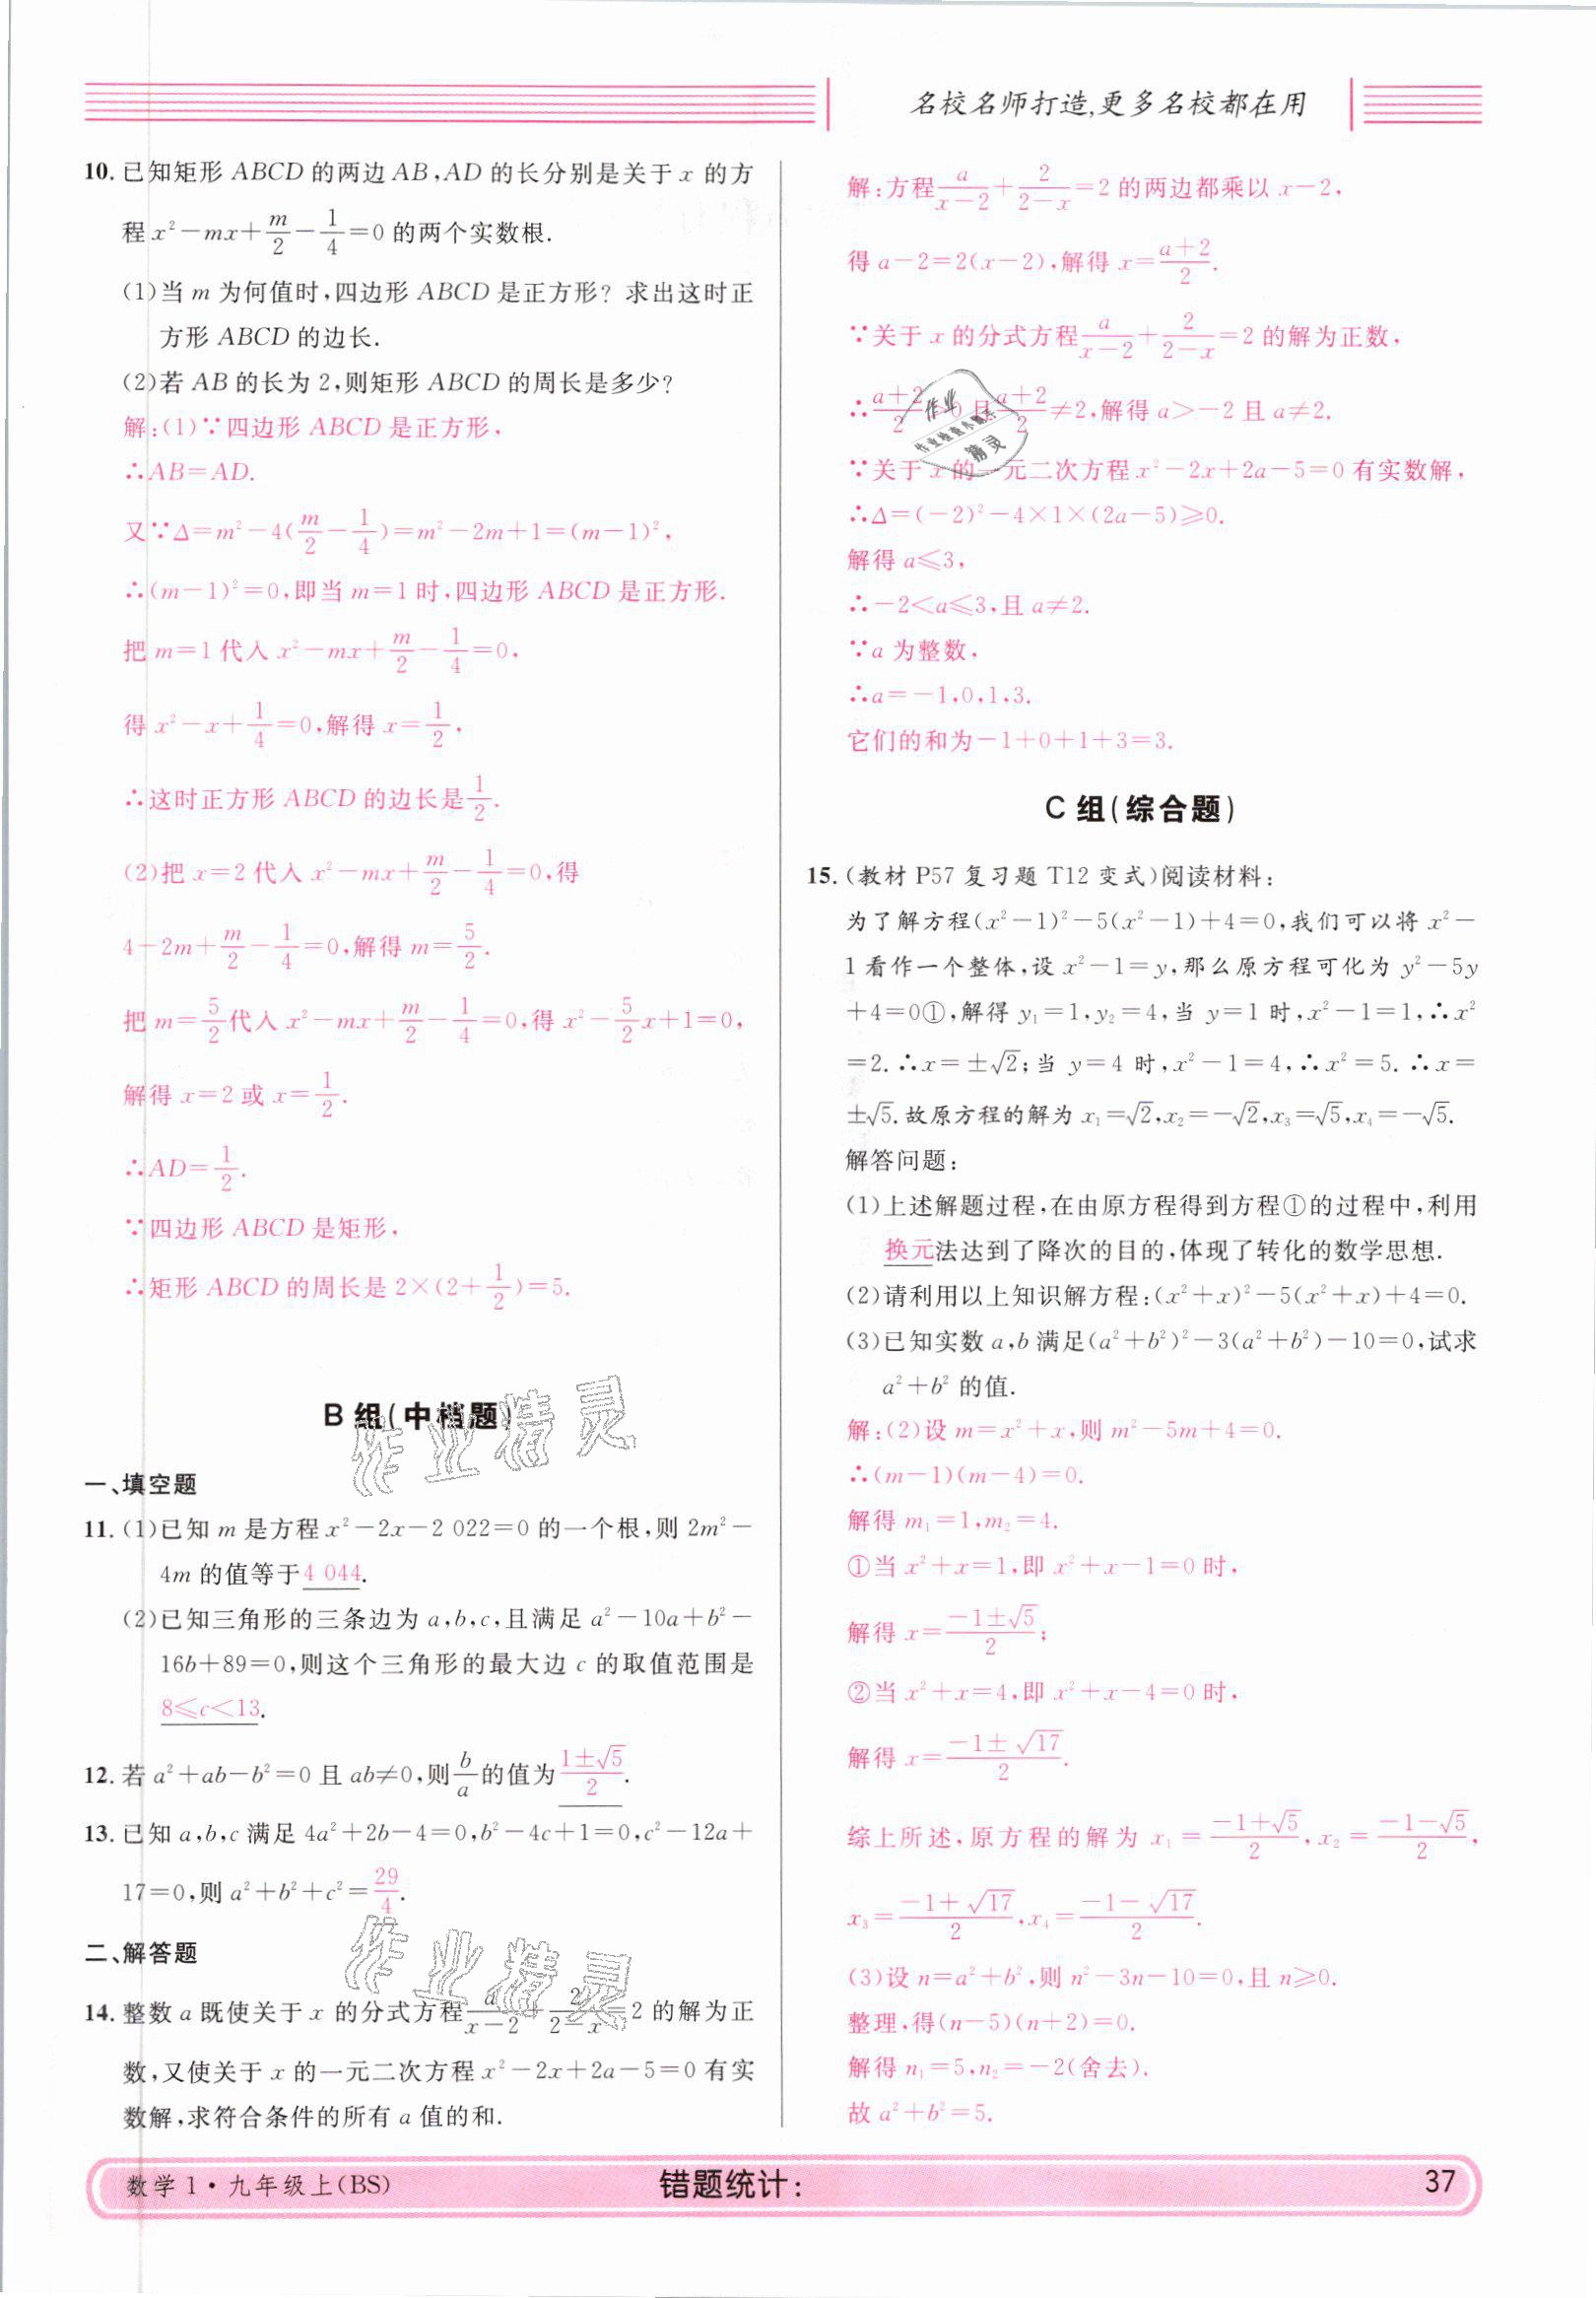 名校名师打造,更多名校都在用
10.已知矩形 ABCD 的两边 AB,AD 的长分别是关于 x 的方
程 x²－mx＋m/2－1/4＝0 的两个实数根.
(1)当 m 为何值时,四边形 ABCD 是正方形? 求出这时正
方形 ABCD 的边长.
(2)若 AB 的长为 2,则矩形 ABCD 的周长是多少?
解:(1)∵四边形 ABCD 是正方形,
∴AB＝AD.
又∵Δ＝m²－4(m/2－1/4)＝m²－2m＋1＝(m－1)²,
∴(m－1)²＝0,即当 m＝1 时,四边形 ABCD 是正方形.
把 m＝1 代入 x²－mx＋m/2－1/4＝0,
得 x²－x＋1/4＝0,解得 x＝1/2,
∴这时正方形 ABCD 的边长是1/2.
(2)把 x＝2 代入 x²－mx＋m/2－1/4＝0,得
4－2m＋m/2－1/4＝0,解得 m＝5/2.
把 m＝5/2代入 x²－mx＋m/2－1/4＝0,得 x²－5/2x＋1＝0,
解得 x＝2 或 x＝1/2.
∴AD＝1/2.
∵四边形 ABCD 是矩形,
∴矩形 ABCD 的周长是 2×(2＋1/2)＝5.
B 组(中档题)
一、填空题
11.(1)已知 m 是方程 x²－2x－2 022＝0 的一个根,则 2m²－
4m 的值等于4 044.
(2)已知三角形的三条边为 a,b,c,且满足 a²－10a＋b²－
16b＋89＝0,则这个三角形的最大边 c 的取值范围是
8≤c＜13.
12.若 a²＋ab－b²＝0 且 ab≠0,则b/a的值为(1±√5)/2.
13.已知 a,b,c 满足 4a²＋2b－4＝0,b²－4c＋1＝0,c²－12a＋
17＝0,则 a²＋b²＋c²＝29/4.
二、解答题
14.整数 a 既使关于 x 的分式方程a/(x－2)＋2/(2－x)＝2 的解为正
数,又使关于 x 的一元二次方程 x²－2x＋2a－5＝0 有实
数解,求符合条件的所有 a 值的和.
解:方程a/(x－2)＋2/(2－x)＝2 的两边都乘以 x－2,
得 a－2＝2(x－2),解得 x＝(a＋2)/2.
∵关于 x 的分式方程a/(x－2)＋2/(2－x)＝2 的解为正数,
∴(a＋2)/2＞0 且(a＋2)/2≠2,解得 a＞－2 且 a≠2.
∵关于 x 的一元二次方程 x²－2x＋2a－5＝0 有实数解,
∴Δ＝(－2)²－4×1×(2a－5)≥0.
解得 a≤3,
∴－2＜a≤3,且 a≠2.
∵a 为整数,
∴a＝－1,0,1,3.
它们的和为－1＋0＋1＋3＝3.
C 组(综合题)
15.(教材 P57 复习题 T12 变式)阅读材料:
为了解方程(x²－1)²－5(x²－1)＋4＝0,我们可以将 x²－
1 看作一个整体,设 x²－1＝y,那么原方程可化为 y²－5y
＋4＝0①,解得 y₁＝1,y₂＝4,当 y＝1 时,x²－1＝1,∴x²
＝2.∴x＝±√2;当 y＝4 时,x²－1＝4,∴x²＝5.∴x＝
±√5.故原方程的解为 x₁＝√2,x₂＝－√2,x₃＝√5,x₄＝－√5.
解答问题:
(1)上述解题过程,在由原方程得到方程①的过程中,利用
换元法达到了降次的目的,体现了转化的数学思想.
(2)请利用以上知识解方程:(x²＋x)²－5(x²＋x)＋4＝0.
(3)已知实数 a,b 满足(a²＋b²)²－3(a²＋b²)－10＝0,试求
a²＋b² 的值.
解:(2)设 m＝x²＋x,则 m²－5m＋4＝0.
∴(m－1)(m－4)＝0.
解得 m₁＝1,m₂＝4.
①当 x²＋x＝1,即 x²＋x－1＝0 时,
解得 x＝(－1±√5)/2;
②当 x²＋x＝4,即 x²＋x－4＝0 时,
解得 x＝(－1±√17)/2.
综上所述,原方程的解为 x₁＝(－1＋√5)/2,x₂＝(－1－√5)/2,
x₃＝(－1＋√17)/2,x₄＝(－1－√17)/2.
(3)设 n＝a²＋b²,则 n²－3n－10＝0,且 n≥0.
整理,得(n－5)(n＋2)＝0.
解得 n₁＝5,n₂＝－2(舍去).
故 a²＋b²＝5.
数学 1·九年级上(BS)
错题统计:
37
作业精灵
作业精灵
作业
作业检查小帮手
精灵